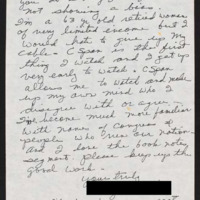 not showing a bias.
I'm a 63 yr old retired woman
of very limited income but I
would hate to give up my
cable. C Span is the first
thing I watch and I get up
very early to watch. C Span
allows me to watch and make
up my own mind who I
disagree with or agree.
I've become much more familiar
with names of Congress &
people who run our nation.
And I love the book notes
segment. Please keep up the
good work.
Yours truly,